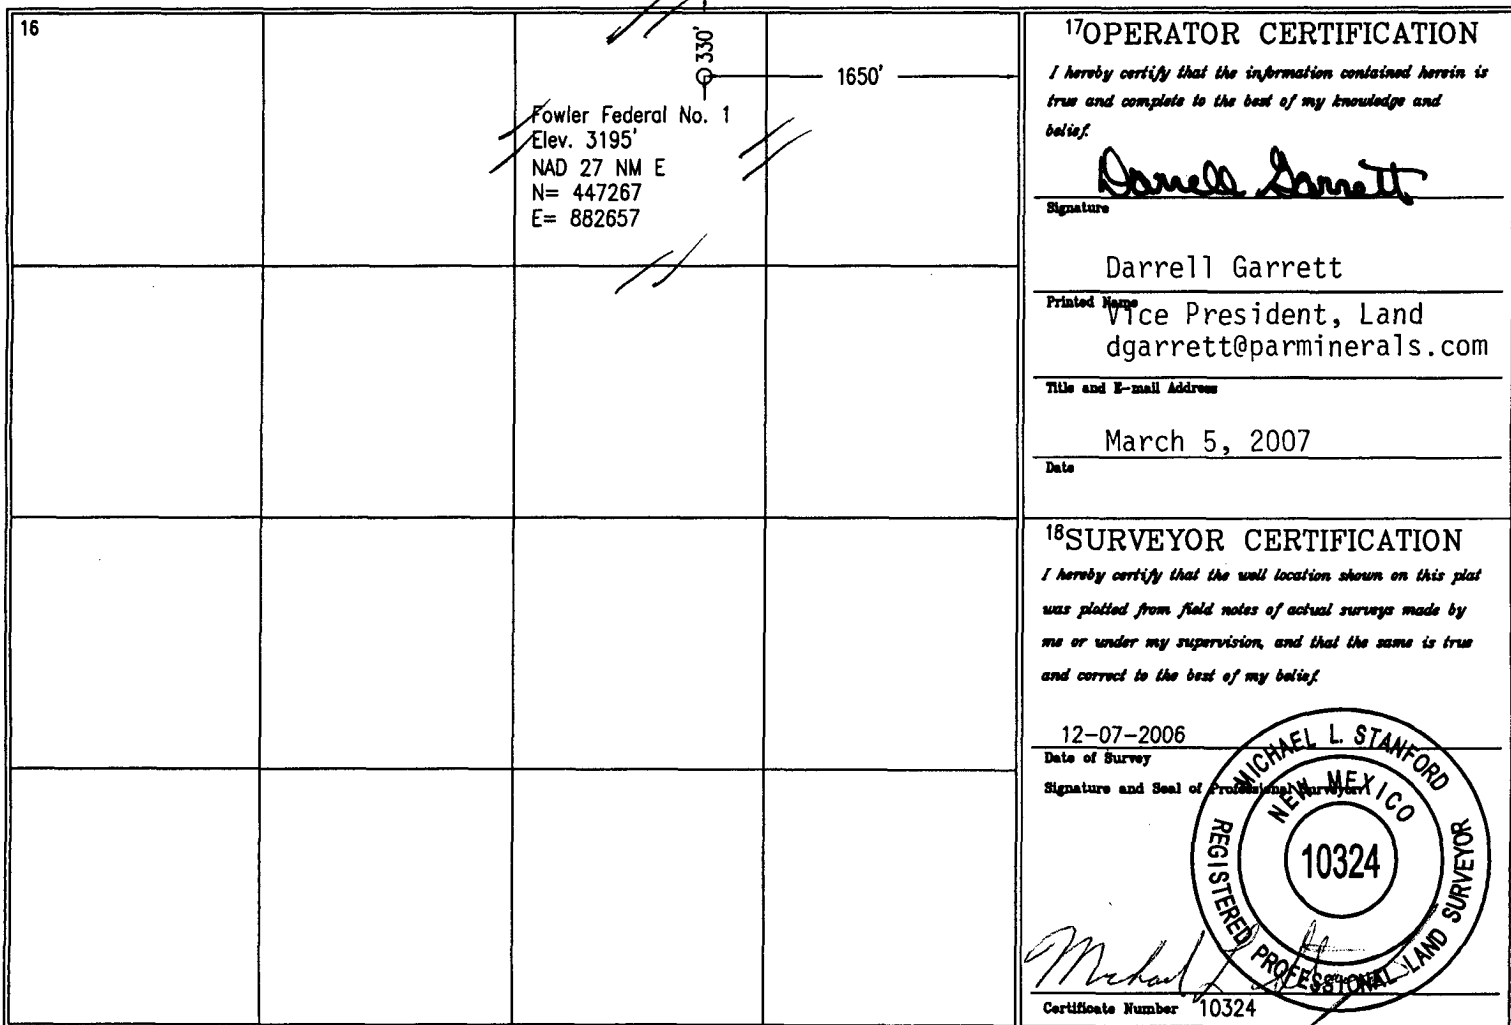 16
330'
1650'
Fowler Federal No. 1
Elev. 3195'
NAD 27 NM E
N= 447267
E= 882657
17 OPERATOR CERTIFICATION
I hereby certify that the information contained herein is
true and complete to the best of my knowledge and
belief.
Darrell Garrett
Signature
Darrell Garrett
Printed Name
Vice President, Land
dgarrett@parminerals.com
Title and E-mail Address
March 5, 2007
Date
18 SURVEYOR CERTIFICATION
I hereby certify that the well location shown on this plat
was plotted from field notes of actual surveys made by
me or under my supervision, and that the same is true
and correct to the best of my belief.
12-07-2006
Date of Survey
Signature and Seal of Professional Surveyor
MICHAEL L. STANFORD
NEW MEXICO
10324
REGISTERED PROFESSIONAL LAND SURVEYOR
Michael L Stanford
Certificate Number 10324